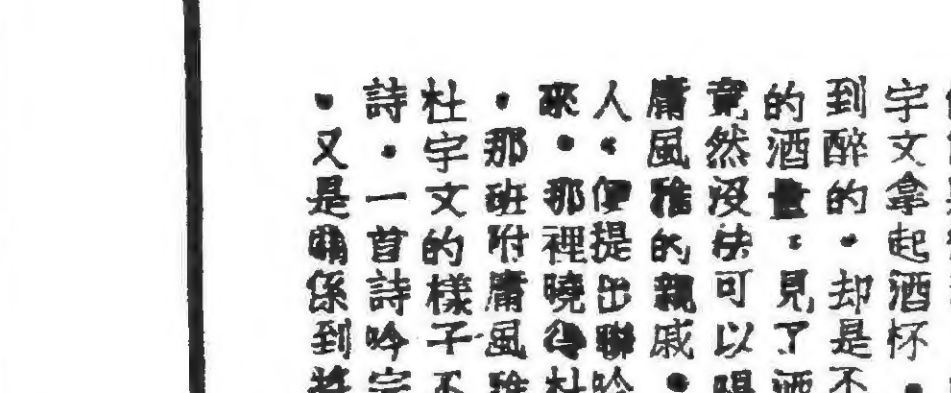 宇文拿起酒杯。
到醉的。却是不
的酒量。見了酒
竟然沒法可以喝
庸風雅的親戚。
人。便提出聯吟
來。那裡曉得杜
。那班附庸風雅
杜宇文的樣子不
詩。一首詩吟完
。又是關係到